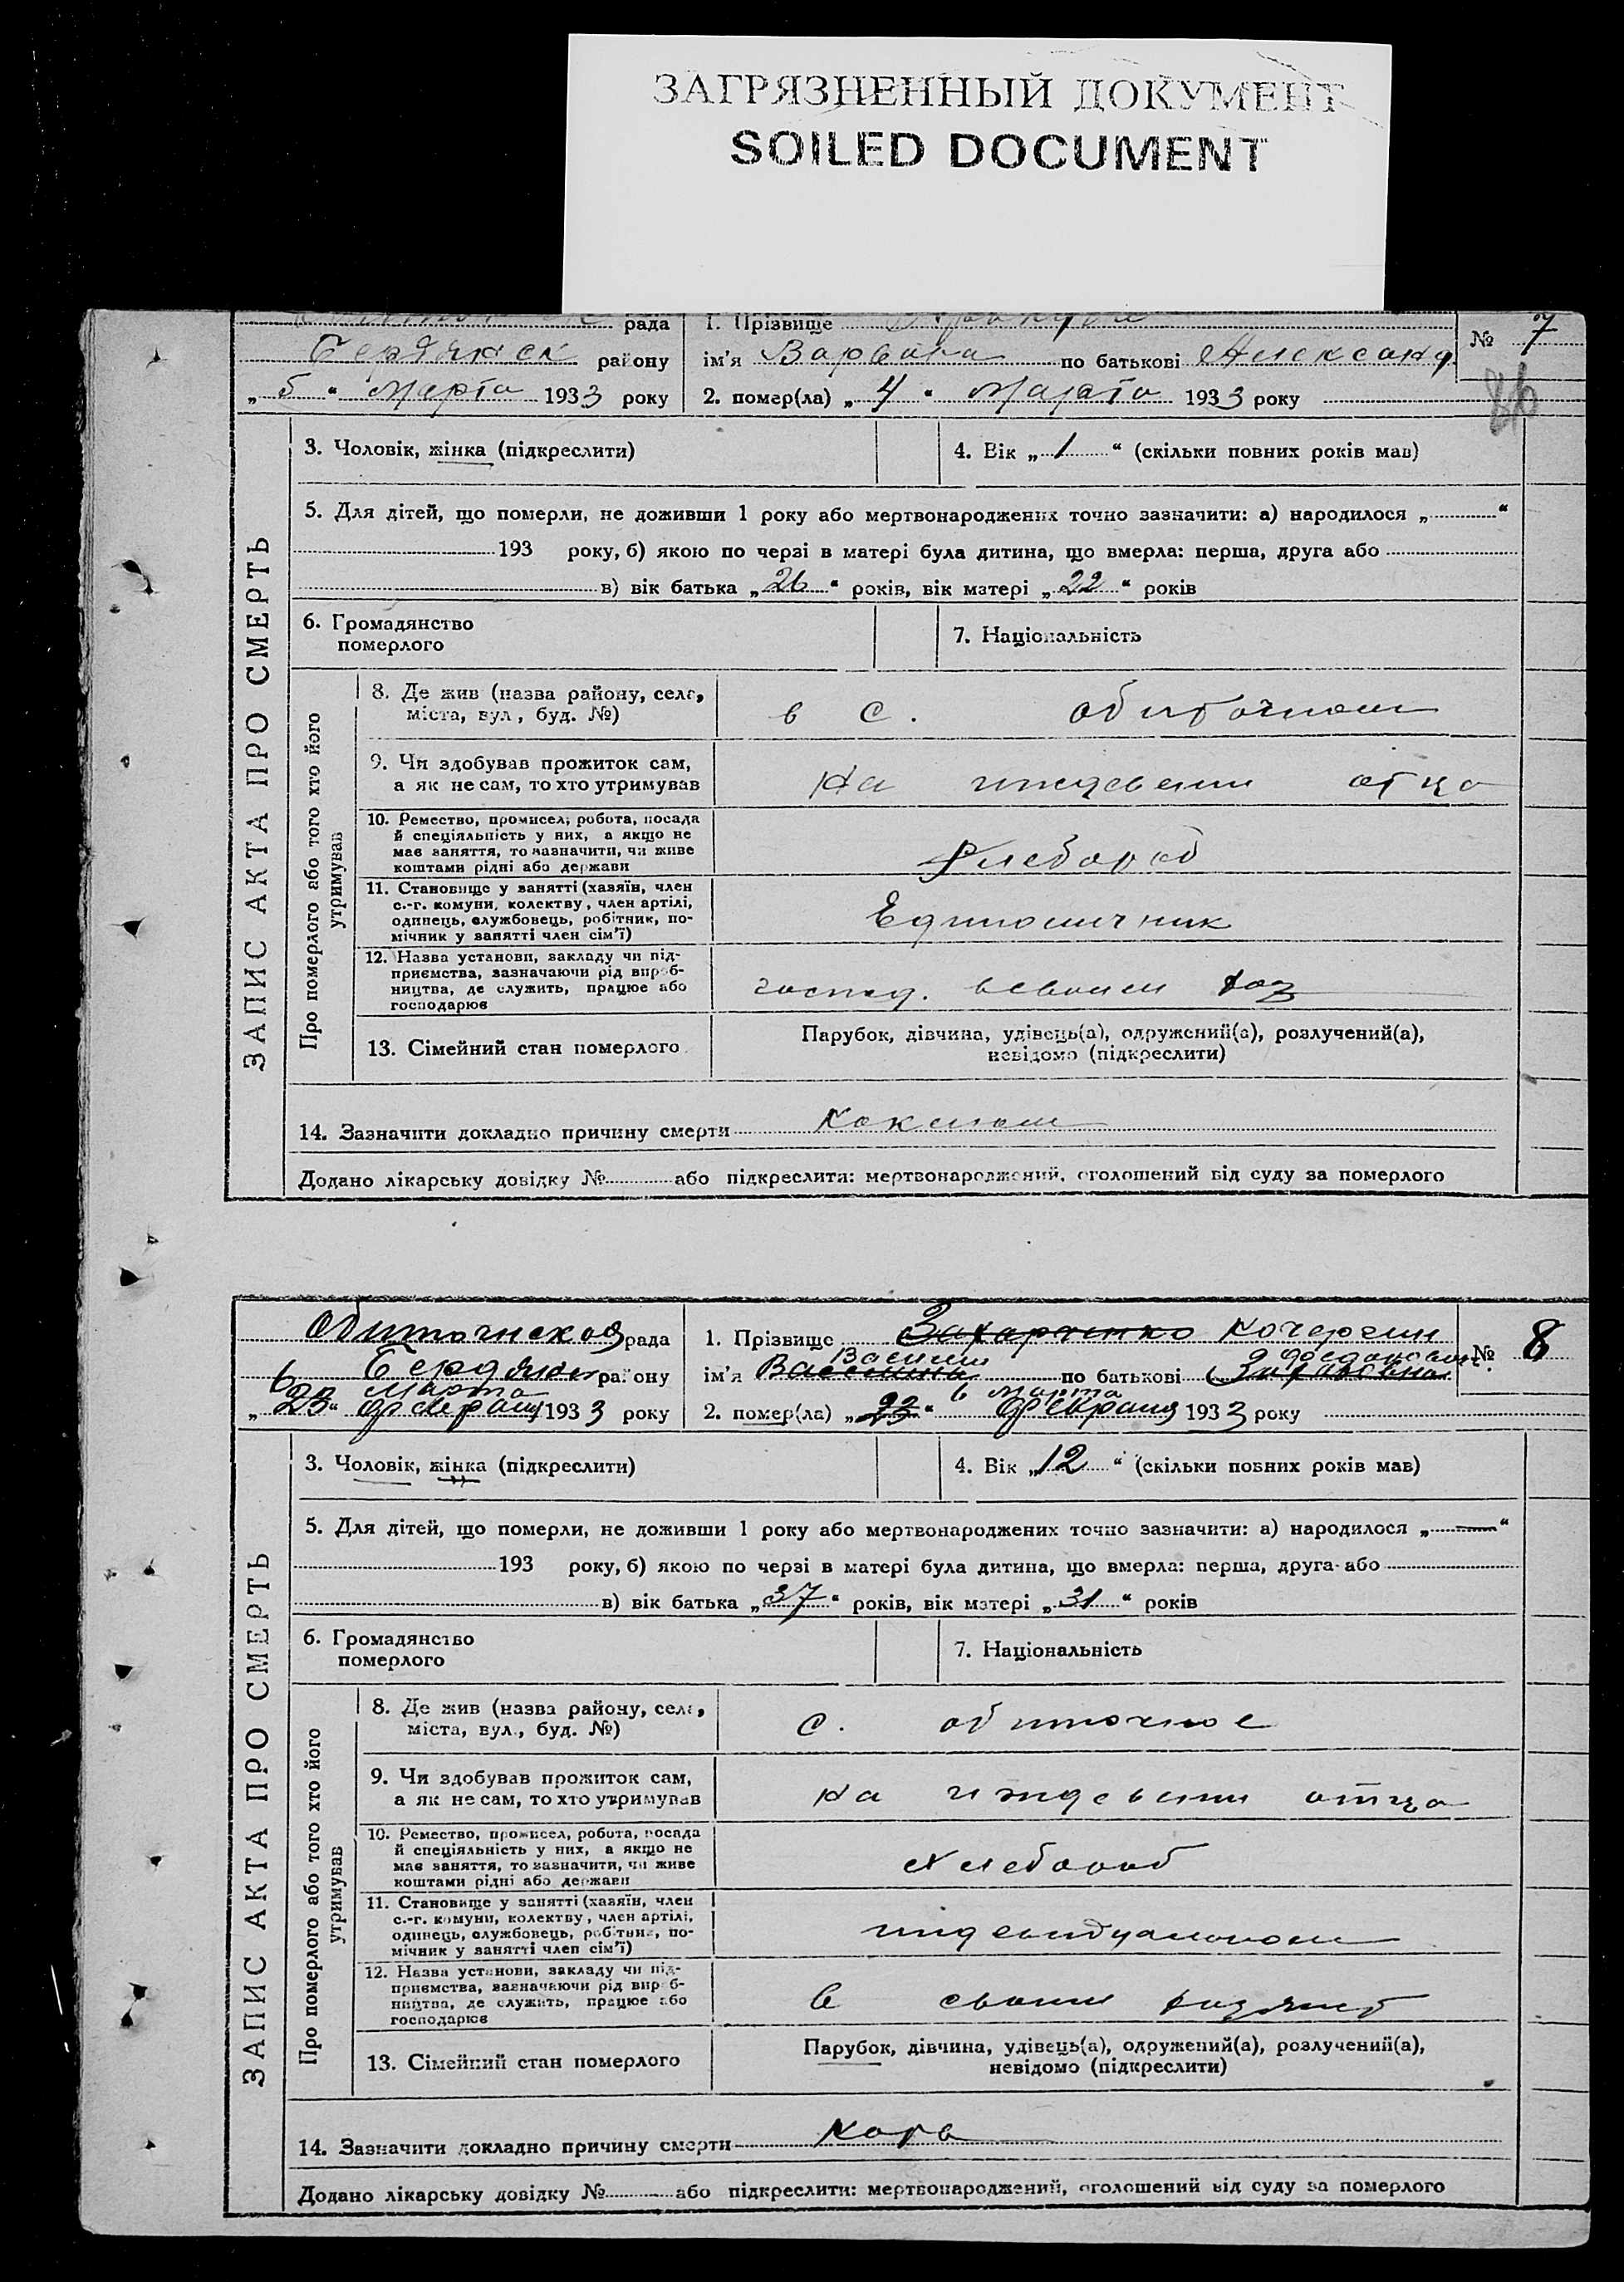 ЗАГРЯЗНЕННЫЙ ДОКУМЕНТ
SOILED DOCUMENT
рада
1. Прізвище
№ 7
Бердянск району
ім'я Варвара по батькові Александ
86
„5“ марта 1933 року
2. помер(ла) „4“ марта 1933 року
ЗАПИС АКТА ПРО СМЕРТЬ
3. Чоловік, жінка (підкреслити)
4. Вік „1“ (скільки повних років мав)
5. Для дітей, що померли, не доживши 1 року або мертвонароджених точно зазначити: а) народилося „ “
193 року, б) якою по черзі в матері була дитина, що вмерла: перша, друга або
в) вік батька „26“ років, вік матері „22“ років
6. Громадянство
померлого
7. Національність
Про померлого або того хто його
утримував
8. Де жив (назва району, села,
міста, вул., буд. №)
в с. обиточном
9. Чи здобував прожиток сам,
а як не сам, то хто утримував
На иждевении отца
10. Ремество, промисел, робота, посада
й спеціяльність у них, а якщо не
має заняття, то зазначити, чи живе
коштами рідні або держави
Хлебороб
11. Становище у занятті (хазяїн, член
с.-г. комуни, колективу, член артілі,
одинець, службовець, робітник, по-
мічник у занятті член сім'ї)
Единоличник
12. Назва установи, закладу чи під-
приємства, зазначаючи рід вироб-
ництва, де служить, працює або
господарює
господ. всвоем хоз
13. Сімейний стан померлого
Парубок, дівчина, удівець(а), одружений(а), розлучений(а),
невідомо (підкреслити)
14. Зазначити докладно причину смерти Коклюш
Додано лікарську довідку № або підкреслити: мертвонароджений, оголошений від суду за померлого
Обиточнской рада
1. Прізвище Захарченко Кочергин
№ 8
Бердянск району
Василий
ім'я Василина по батькові
6 марта
„23“ февраля 1933 року
6 марта
2. помер(ла) „23“ февраля 1933 року
ЗАПИС АКТА ПРО СМЕРТЬ
3. Чоловік, жінка (підкреслити)
4. Вік „12“ (скільки повних років мав)
5. Для дітей, що померли, не доживши 1 року або мертвонароджених точно зазначити: а) народилося „—“
193 року, б) якою по черзі в матері була дитина, що вмерла: перша, друга або
в) вік батька „37“ років, вік матері „31“ років
6. Громадянство
померлого
7. Національність
Про померлого або того хто його
утримував
8. Де жив (назва району, села,
міста, вул., буд. №)
с. обиточное
9. Чи здобував прожиток сам,
а як не сам, то хто утримував
На иждевении отца
10. Ремество, промисел, робота, посада
й спеціяльність у них, а якщо не
має заняття, то зазначити, чи живе
коштами рідні або держави
Хлебороб
11. Становище у занятті (хазяїн, член
с.-г. комуни, колективу, член артілі,
одинець, службовець, робітник, по-
мічник у занятті член сім'ї)
12. Назва установи, закладу чи під-
приємства, зазначаючи рід вироб-
ництва, де служить, працює або
господарює
в своем
13. Сімейний стан померлого
Парубок, дівчина, удівець(а), одружений(а), розлучений(а),
невідомо (підкреслити)
14. Зазначити докладно причину смерти Корь
Додано лікарську довідку № або підкреслити: мертвонароджений, оголошений від суду за померлого